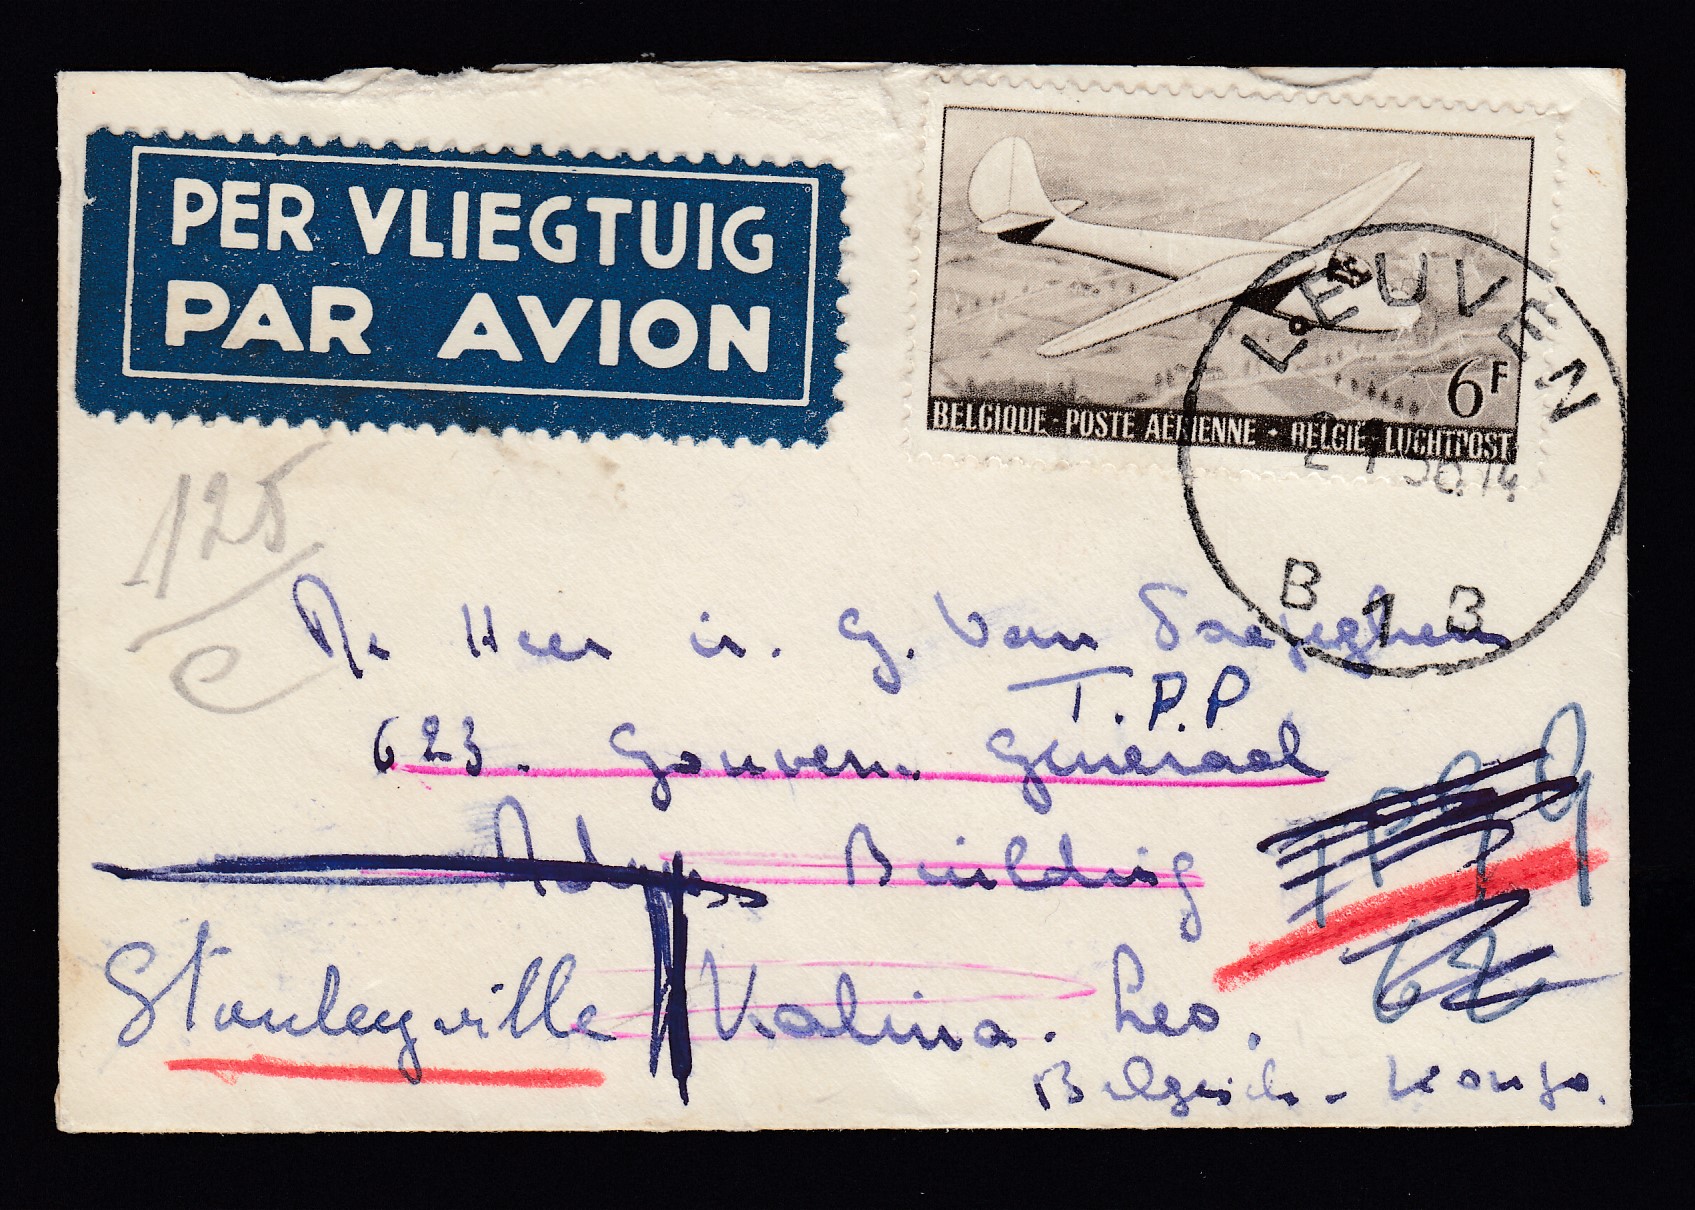 PER VLIEGTUIG
PAR AVION
6F
BELGIQUE - POSTE AERIENNE - BELGIË - LUCHTPOST
LEUVEN
B 1 B
125
De Heer ir. G. Van
T.P.P
623. Gouvern. Generaal
Building
Stanleyville Kalina. Leo.
Belgisch - Kongo.